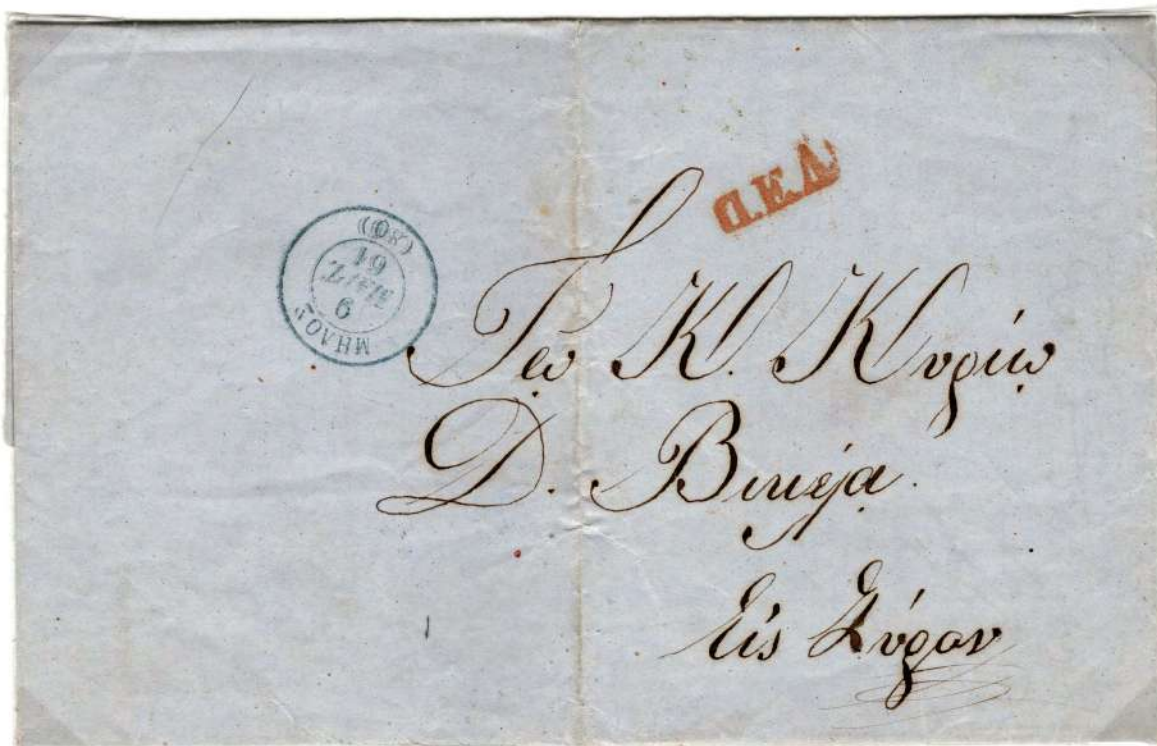 ΜΗΛΟΣ
61
(80)
Τῳ Κ. Κυρίῳ
Δ. Βικέλα.
Εἰς Σύραν